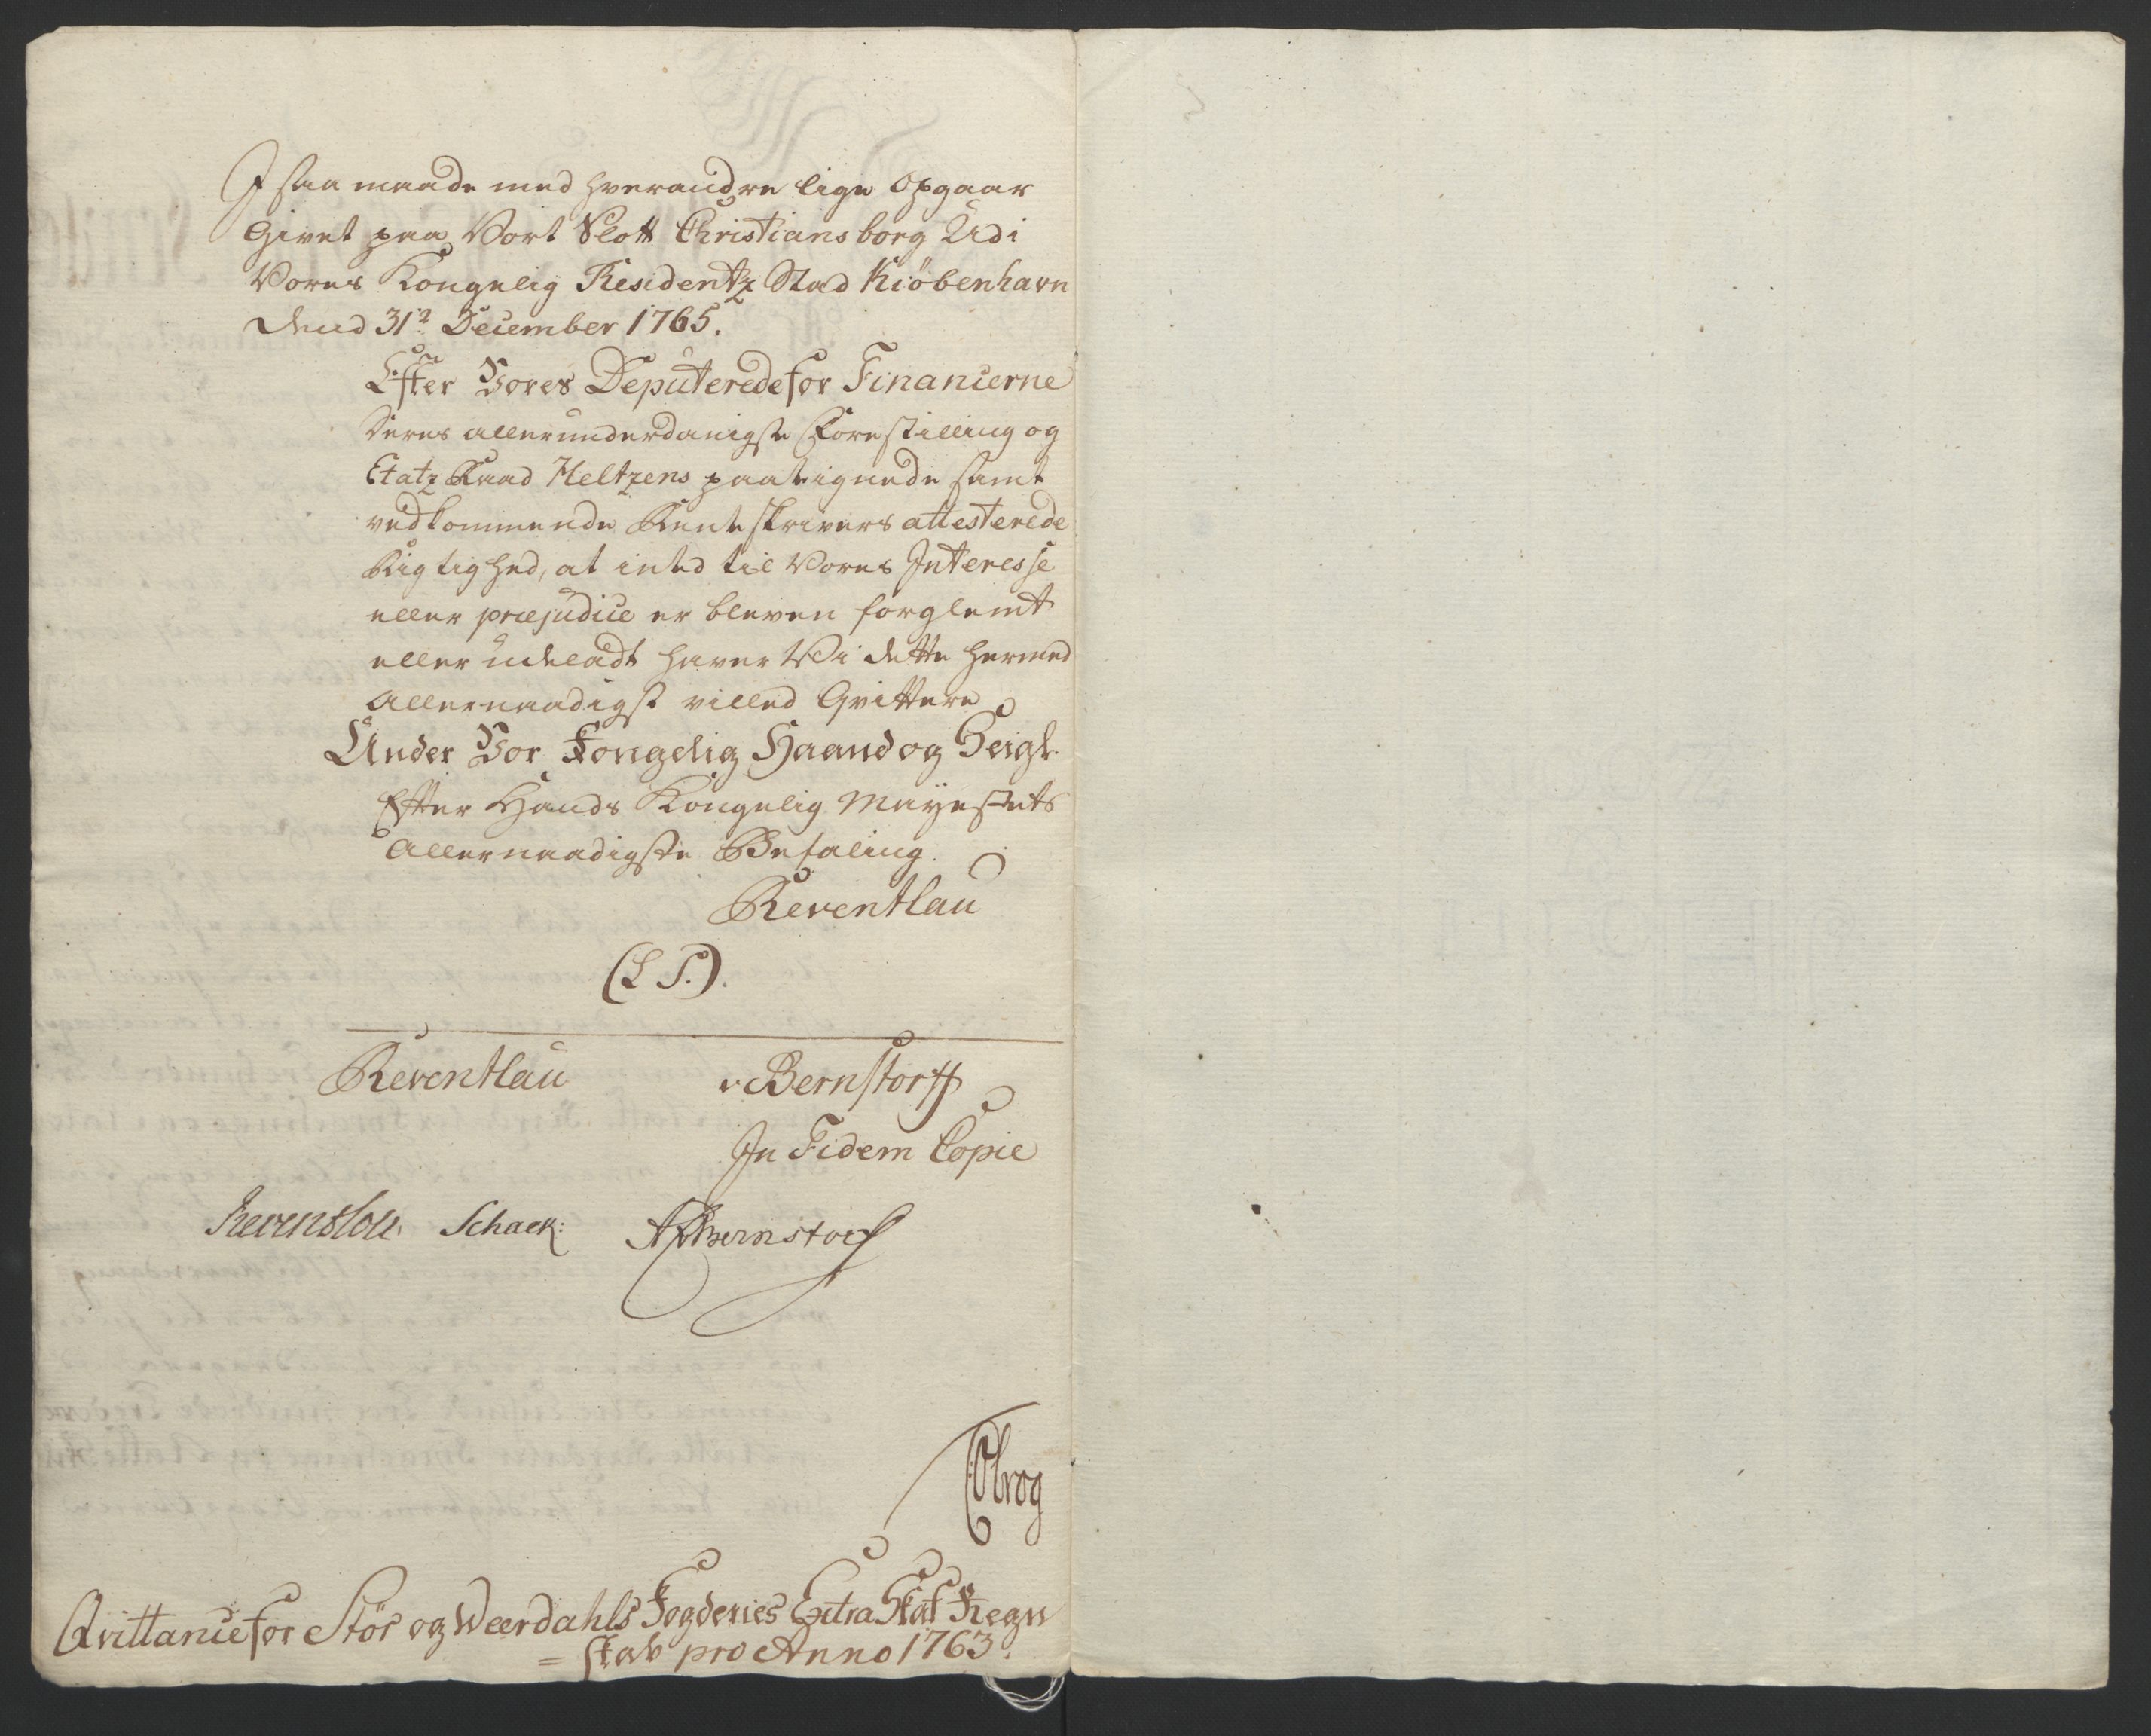 I saa maade med hverandre lige opgaar
Givet paa Vort Slott Christiansborg Udi
Vores Kongelig Residentz Stad Kiöbenhavn
Dend 31te December 1765.
Efter Vores Deputerede for Financierne
Deres allerunderdanigste Forestilling og
Etatz Raad Heltzens paateignede samt
vedkommende Renteskrivers attesterede
Rigtighed, at inted til Vores Interesse
eller præjudice er bleven forglemt
eller udeladt haver Vi dette hermed
Allernaadigst villed Qvittere
Under Vor Kongelig Haand og Seigl.
Efter Hands Kongelig Mayestets
Allernaadigste Befaling.
Reventlau
(L S.).
Reventlau v Bernstorff
In Fidem Copie
Reventlou. Schack: Bernstorff
Olrog
Qvittance for Stör og Weerdahls Fogderies Extra Skat Regn
= skab pro Anno 1763.